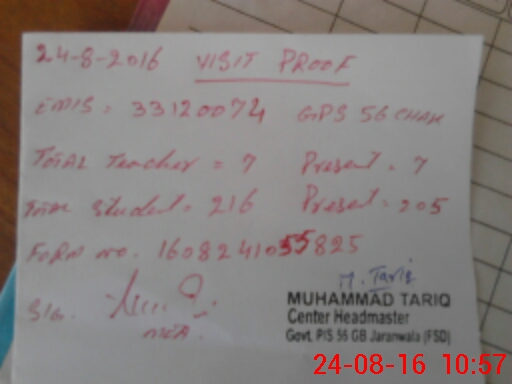 24-8-2016 VISIT PROOF
EMIS = 33120074 GPS 56 CHAK
TOTAL Teacher = 7 Present = 7
Total Student = 216 Present = 205
FORM no. 16082410 55825
SIG.
MEA.
M. Tariq
MUHAMMAD TARIQ
Center Headmaster
Govt. P/S 56 GB Jaranwala (FSD)
24-08-16 10:57